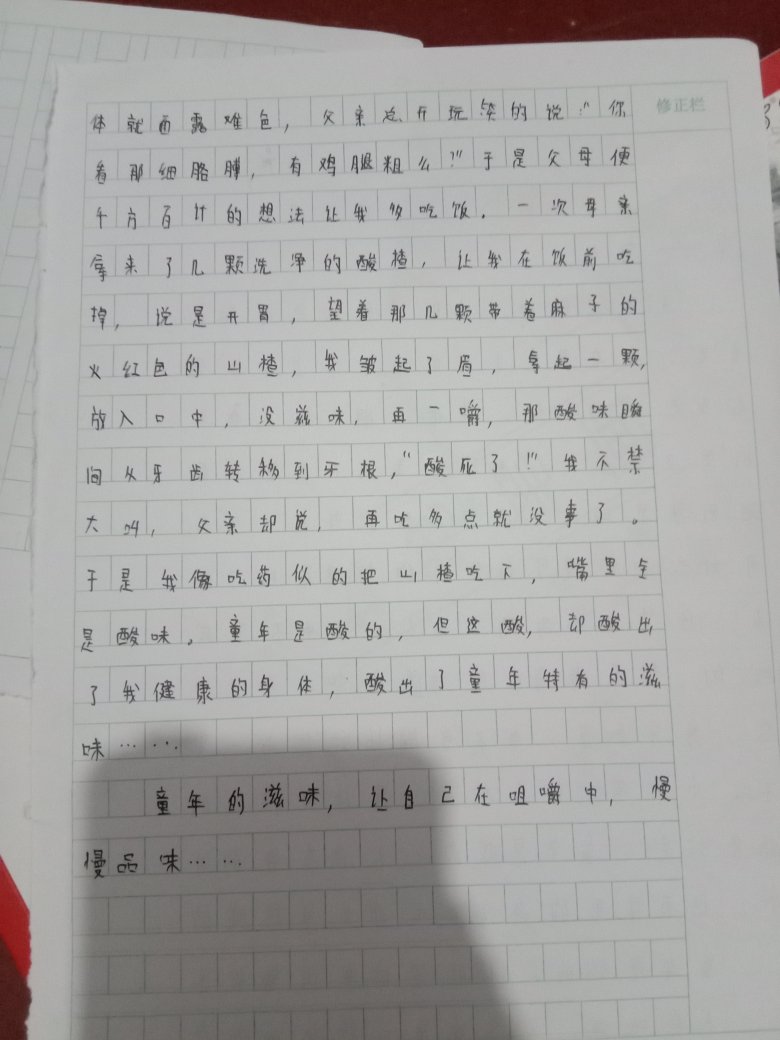 修正栏
体就面露难色，父亲总开玩笑的说："你
看那细胳膊，有鸡腿粗么？"于是父母便
千方百计的想法让我多吃饭。一次母亲
拿来了几颗洗净的酸楂，让我在饭前吃
掉，说是开胃，望着那几颗带着麻子的
火红色的山楂，我皱起了眉，拿起一颗，
放入口中，没滋味，再一嚼，那酸味瞬
间从牙齿转移到牙根，"酸死了！"我不禁
大叫，父亲却说，再吃多点就没事了。
于是我像吃药似的把山楂吃下，嘴里全
是酸味。童年是酸的，但这酸，却酸出
了我健康的身体，酸出了童年特有的滋
味……
童年的滋味，让自己在咀嚼中，慢
慢品味……